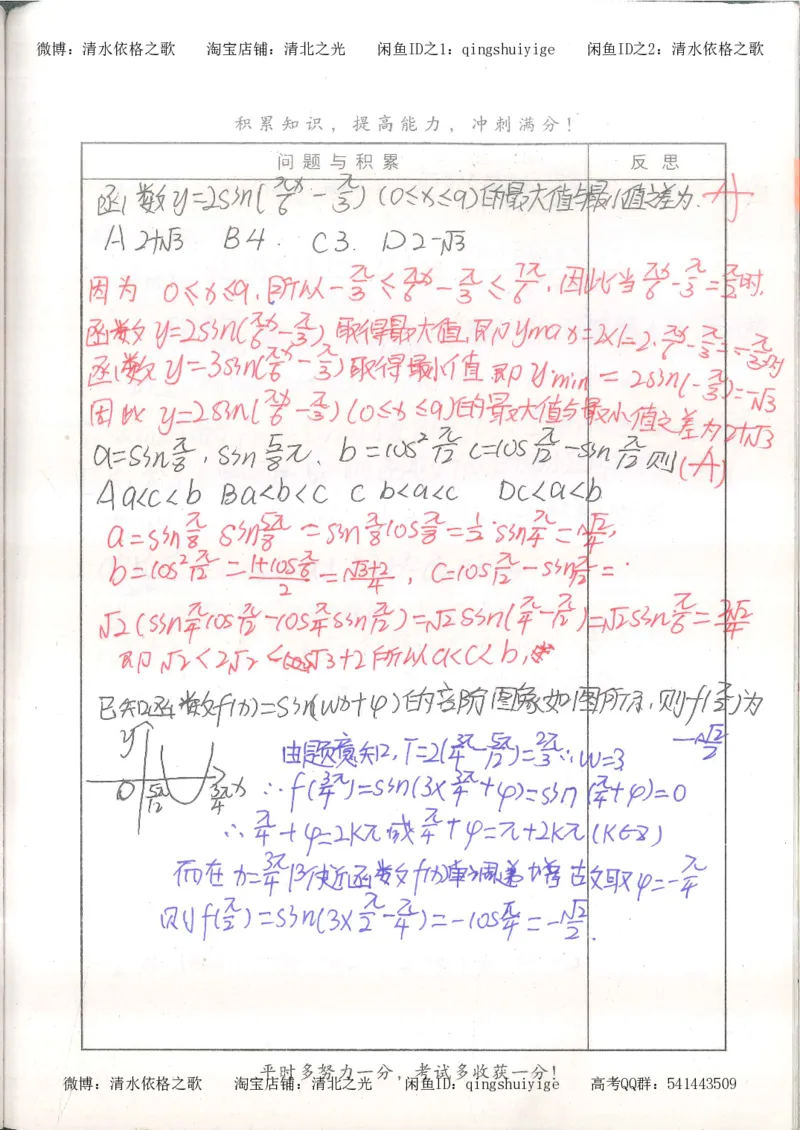 微博：清水依格之歌 淘宝店铺：清北之光 闲鱼ID之1：qingshuiyige 闲鱼ID之2：清水依格之歌
积累知识，提高能力，冲刺满分！
问题与积累 反思
函数y=2sin(πx/6 - π/3) (0≤x≤9)的最大值与最小值之差为. A
A 2+√3 B 4. C 3. D 2-√3
因为 0≤x≤9,所以-π/3≤πx/6-π/3≤7π/6,因此当πx/6-π/3=π/2时,
函数y=2sin(πx/6-π/3)取得最大值,即ymax=2×1=2.πx/6-π/3=-π/3时
函数y=3sin(πx/6-π/3)取得最小值即ymin=2sin(-π/3)=-√3
因此y=2sin(πx/6-π/3)(0≤x≤9)的最大值与最小值之差为2+√3
a=sinπ/8,sin5/8π. b=cos²π/12 c=cosπ/12-sinπ/12则(A)
A a<c<b B a<b<c C b<a<c D c<a<b
a=sinπ/8 sin5π/8=sinπ/8cosπ/8=1/2·sinπ/4=√2/4,
b=cos²π/12=1+cosπ/6/2=√3+2/4, c=cosπ/12-sinπ/12=
√2(sinπ/4cosπ/12-cosπ/4sinπ/12)=√2sin(π/4-π/12)=√2sinπ/6=2√2/4
即√2<2√2<√3+2所以a<c<b,
已知函数f(x)=sin(wx+φ)的部分图象如图所示,则f(π/2)为
-√2/2
y
0 5π/12 3π/4 x
由题意知,T=2(3π/4-5π/12)=2π/3∴w=3
∴f(3π/4)=sin(3×3π/4+φ)=sin(π/4+φ)=0
∴π/4+φ=2kπ或π/4+φ=π+2kπ(k∈Z)
而在x=3π/4附近函数f(x)单调递增故取φ=-π/4
则f(π/2)=sin(3×π/2-π/4)=-cosπ/4=-√2/2.
平时多努力一分，考试多收获一分！
微博：清水依格之歌 淘宝店铺：清北之光 闲鱼ID：qingshuiyige 高考QQ群：541443509